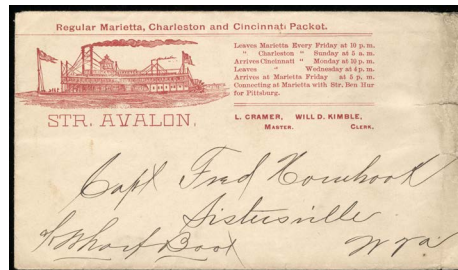 Regular Marietta, Charleston and Cincinnati Packet.
Leaves Marietta Every Friday at 10 p. m.
" Charleston " Sunday at 5 a. m.
Arrives Cincinnati " Monday at 10 p. m.
Leaves " Wednesday at 4 p. m.
Arrives at Marietta Friday at 5 p. m.
Connecting at Marietta with Str. Ben Hur
for Pittsburg.
STR. AVALON.
L. CRAMER, WILL D. KIMBLE,
MASTER. CLERK.
Capt Fred Hornbrook
Sistersville
Wharf Boat W Va